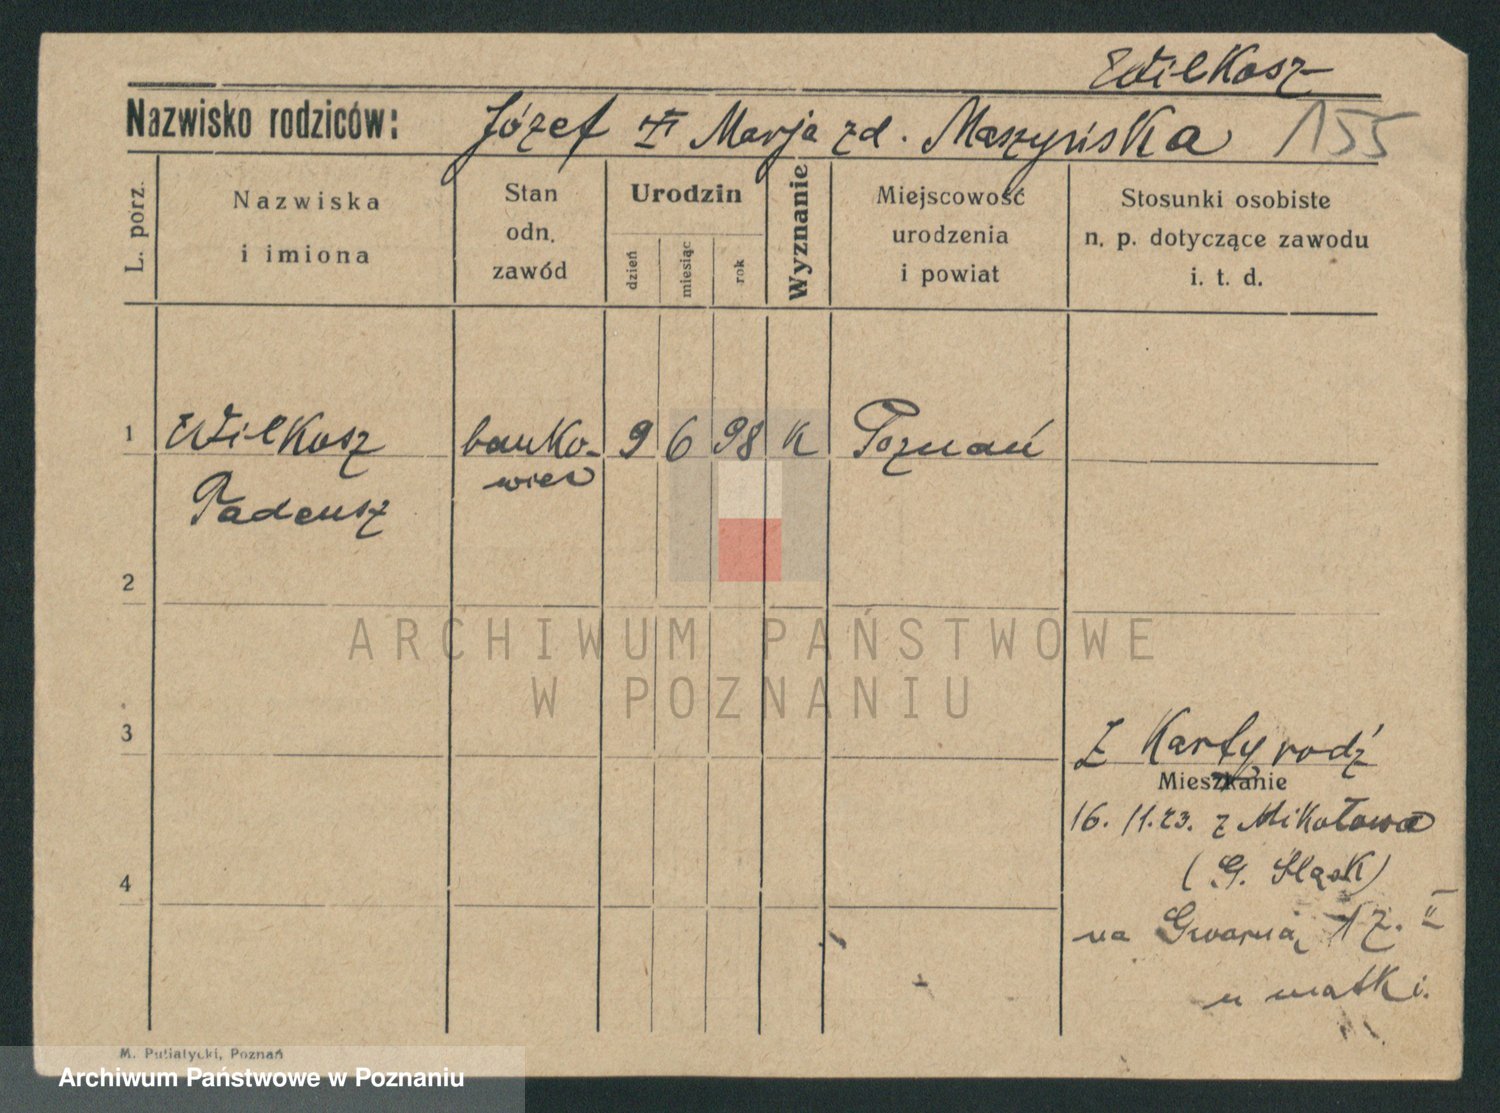 Wilkosz
Nazwisko rodziców: Józef i Marja zd. Maszyńska 155
L. porz.
Nazwiska
i imiona
Stan
odn.
zawód
Urodzin
dzień
miesiąc
rok
Wyznanie
Miejscowość
urodzenia
i powiat
Stosunki osobiste
n. p. dotyczące zawodu
i. t. d.
1 Wilkosz banko- 9 6 98 k Poznań
wiec
Tadeusz
2
ARCHIWUM PAŃSTWOWE
W POZNANIU
3
Z Karty rodz
Mieszkanie
16. 11. 23. z Mikołowa
(G. Śląsk)
4
na Gwarną 17. II
u matki.
M. Putiatycki, Poznań
Archiwum Państwowe w Poznaniu